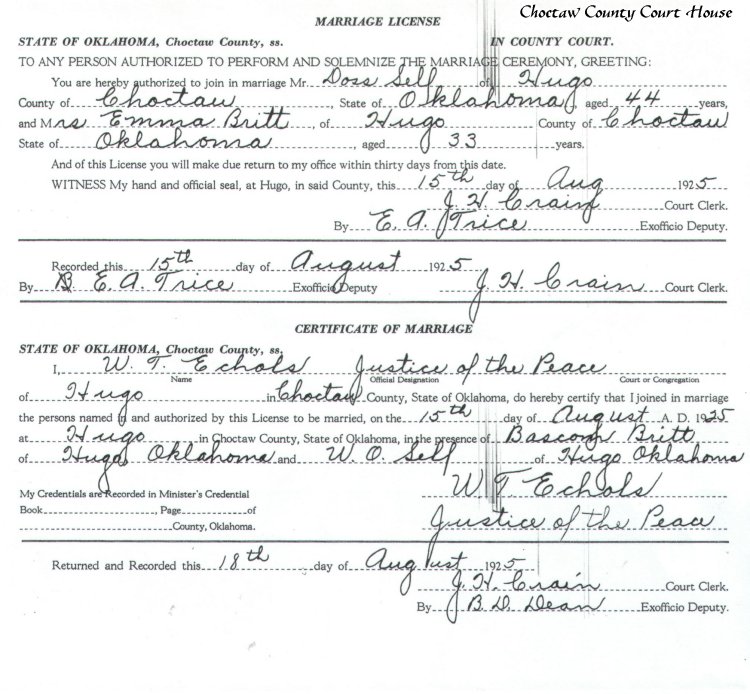 Choctaw County Court House
MARRIAGE LICENSE
STATE OF OKLAHOMA, Choctaw County, ss. IN COUNTY COURT.
TO ANY PERSON AUTHORIZED TO PERFORM AND SOLEMNIZE THE MARRIAGE CEREMONY, GREETING:
You are hereby authorized to join in marriage Mr. Doss Self of Hugo
County of Choctaw, State of Oklahoma, aged 44 years,
and Mrs. Emma Britt, of Hugo County of Choctaw
State of Oklahoma aged 33 years.
And of this License you will make due return to my office within thirty days from this date.
WITNESS My hand and official seal, at Hugo, in said County, this 15th day of Aug 1925
J. H. Crain Court Clerk.
By E. A. Trice Exofficio Deputy.
Recorded this 15th day of August 1925
By E. A. Trice Exofficio Deputy J. H. Crain Court Clerk.
CERTIFICATE OF MARRIAGE
STATE OF OKLAHOMA, Choctaw County, ss.
I, W. T. Echols Justice of the Peace
Name Official Designation Court or Congregation
of Hugo in Choctaw County, State of Oklahoma, do hereby certify that I joined in marriage
the persons named in and authorized by this License to be married, on the 15th day of August A. D. 1925
at Hugo in Choctaw County, State of Oklahoma, in the presence of Bascom Britt
of Hugo Oklahoma and W. O. Self of Hugo Oklahoma
My Credentials are Recorded in Minister's Credential W T Echols
Book, Page of
County, Oklahoma. Justice of the Peace
Returned and Recorded this 18th day of August 1925
J. H. Crain Court Clerk.
By B. D. Dean Exofficio Deputy.